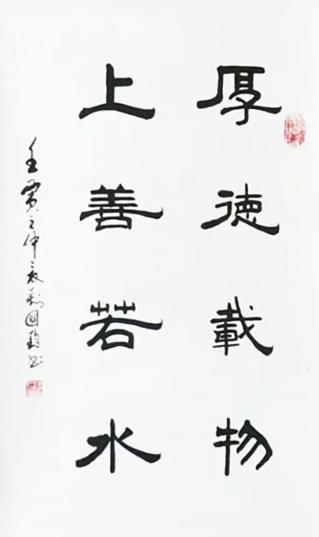 厚徳載物
上善若水
壬寅之仲夏